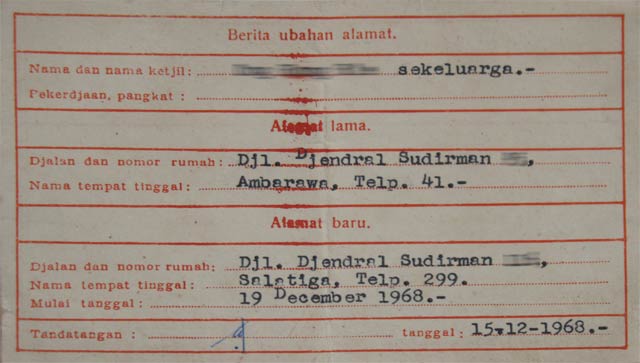 Berita ubahan alamat.
Nama dan nama ketjil: sekeluarga.-
Pekerdjaan, pangkat :
Alamat lama.
Djalan dan nomor rumah: Djl. Djendral Sudirman ,
Nama tempat tinggal: Ambarawa, Telp. 41.-
Alamat baru.
Djalan dan nomor rumah: Djl. Djendral Sudirman ,
Nama tempat tinggal: Salatiga, Telp. 299.
Mulai tanggal: 19 December 1968.-
Tandatangan : tanggal: 15-12-1968.-